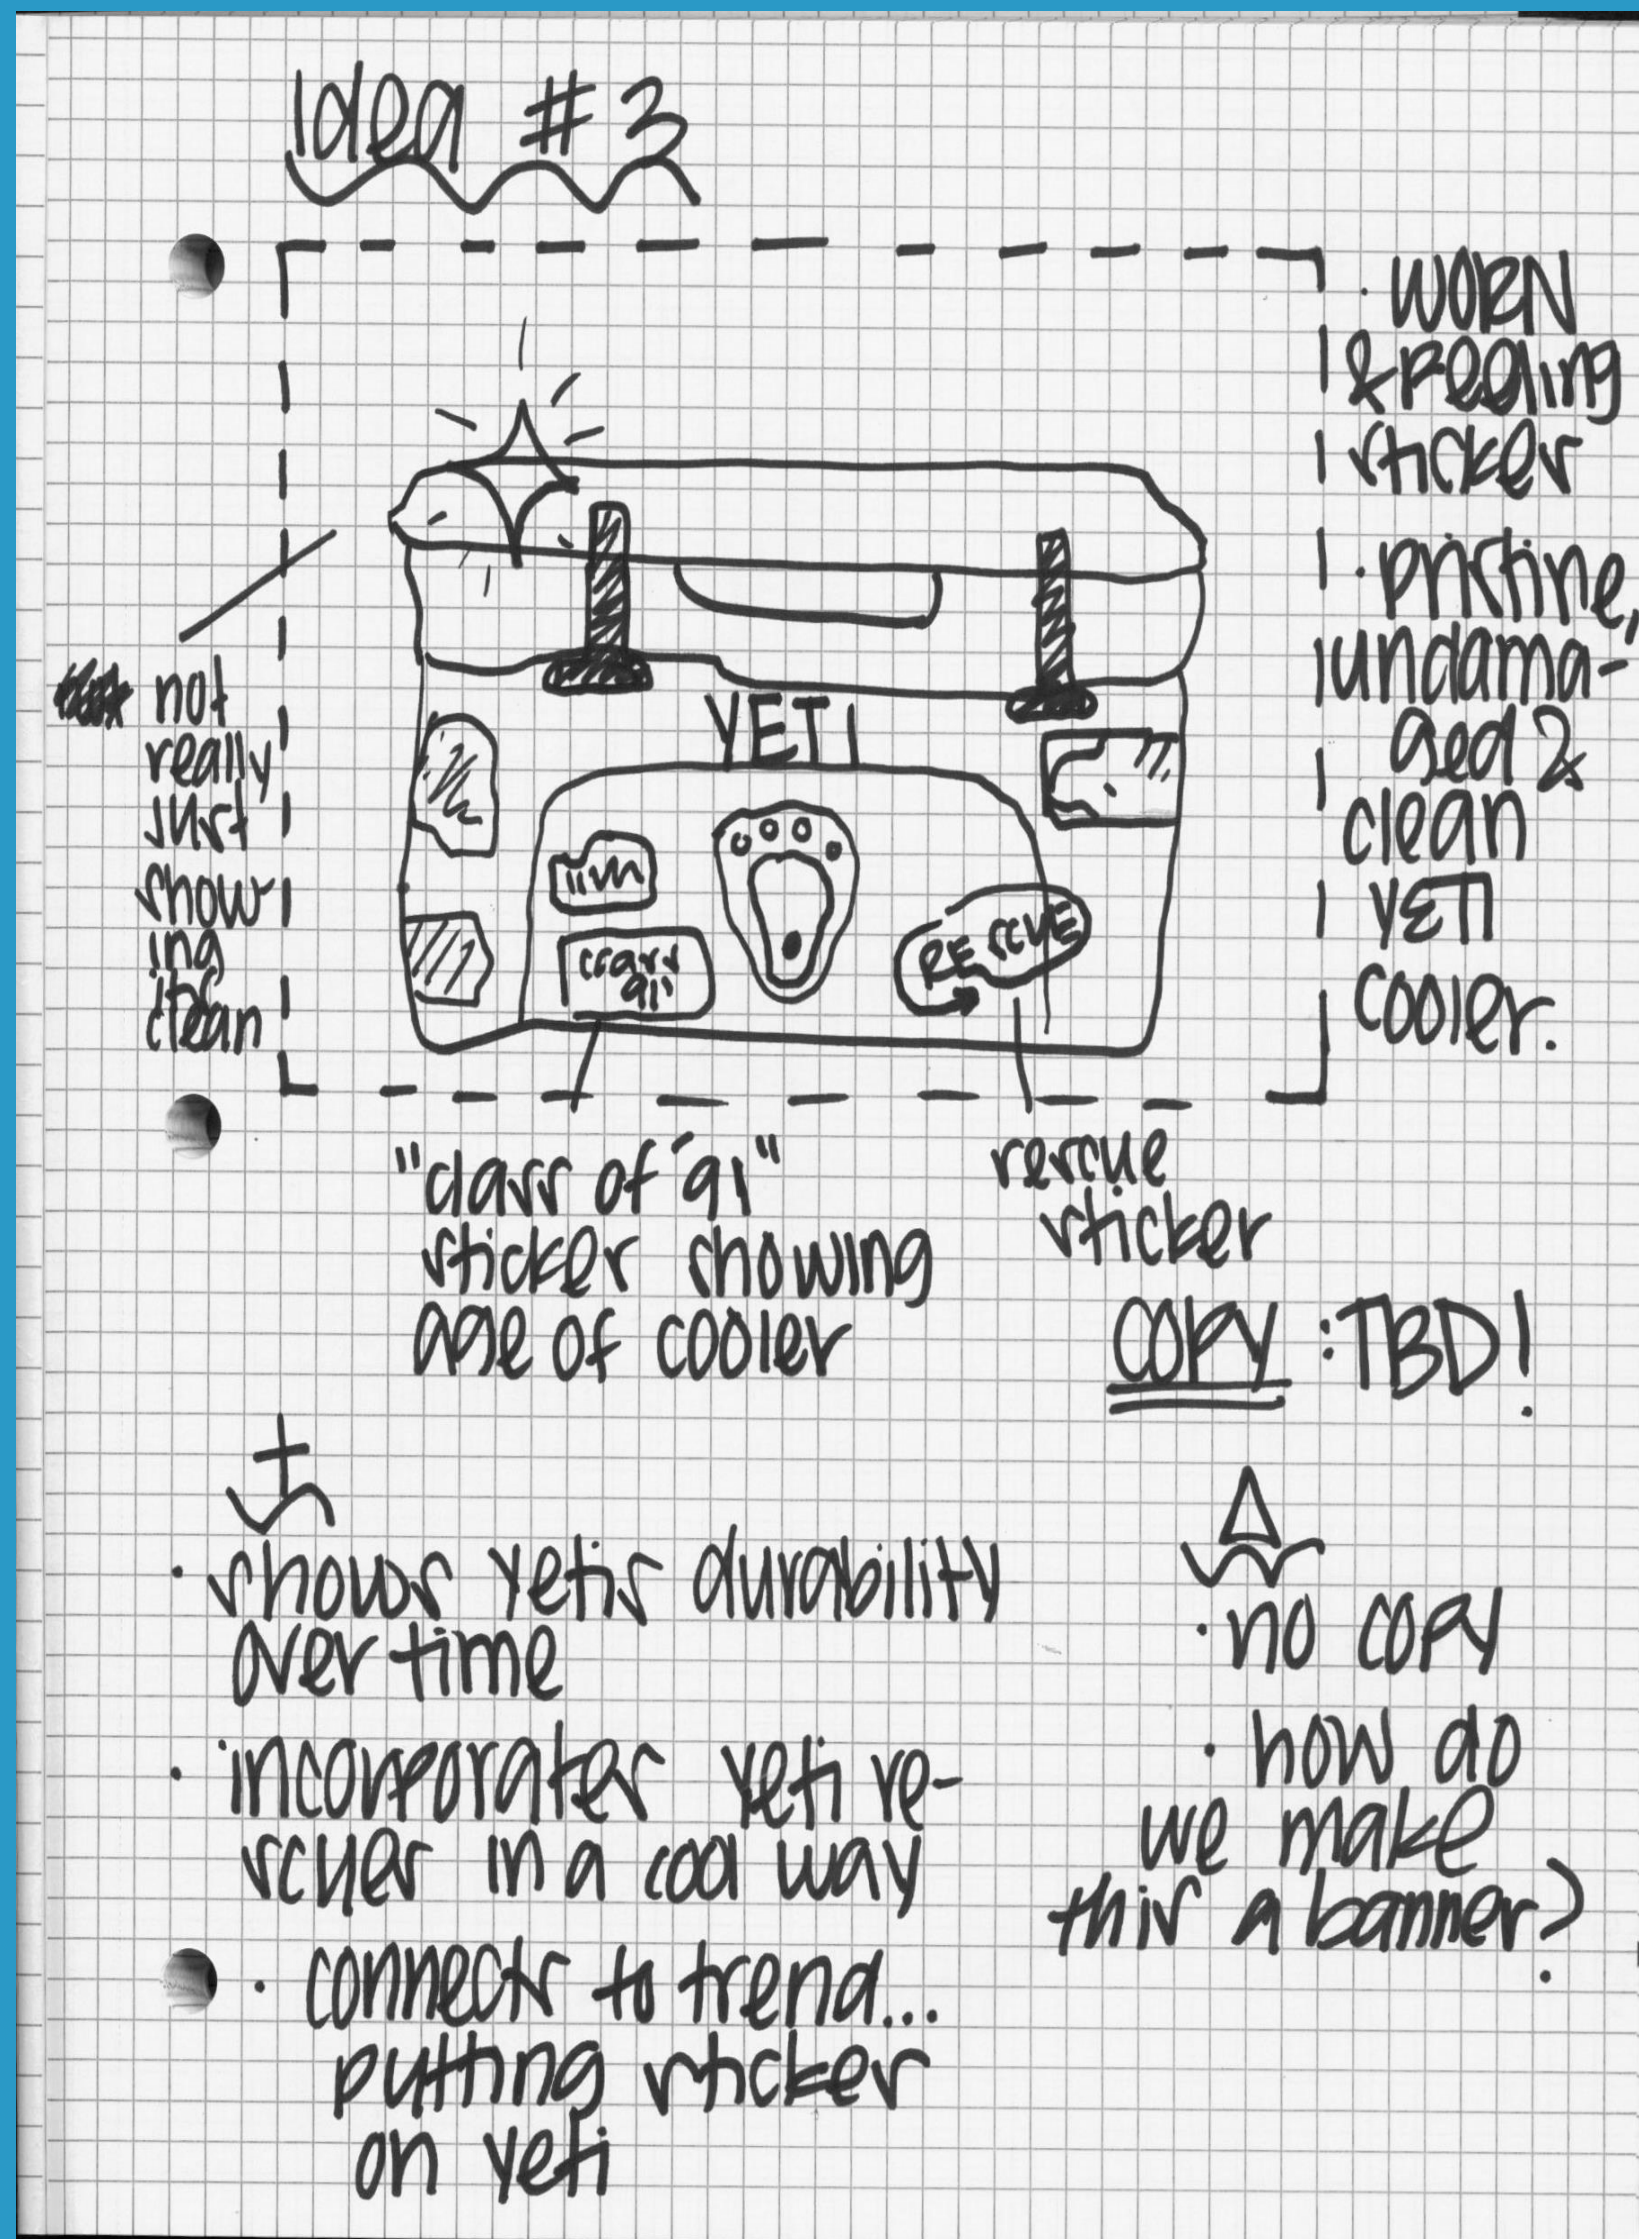 Idea #3
· WORN
& peeling
sticker
· pristine,
undama-
ged &
clean
YETI
cooler.
not
really
just
show-
ing
its
clean
YETI
class
91
RESCUE
"class of '91"
sticker showing
age of cooler
rescue
sticker
COPY : TBD!
+
· shows yetis durability
over time
· incorporates yeti re-
scues in a cool way
· connects to trend...
putting sticker
on yeti
Δ
· no copy
· how do
we make
this a banner?